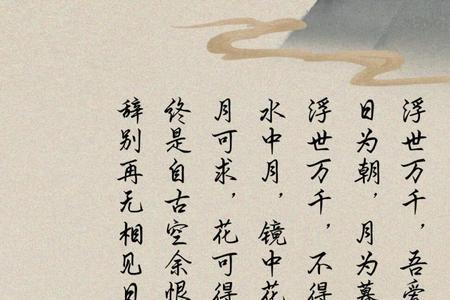 浮世万千，吾爱
日为朝，月为暮
浮世万千，不得
水中月，镜中花
月可求，花可得
终是自古空余恨
辞别再无相见日